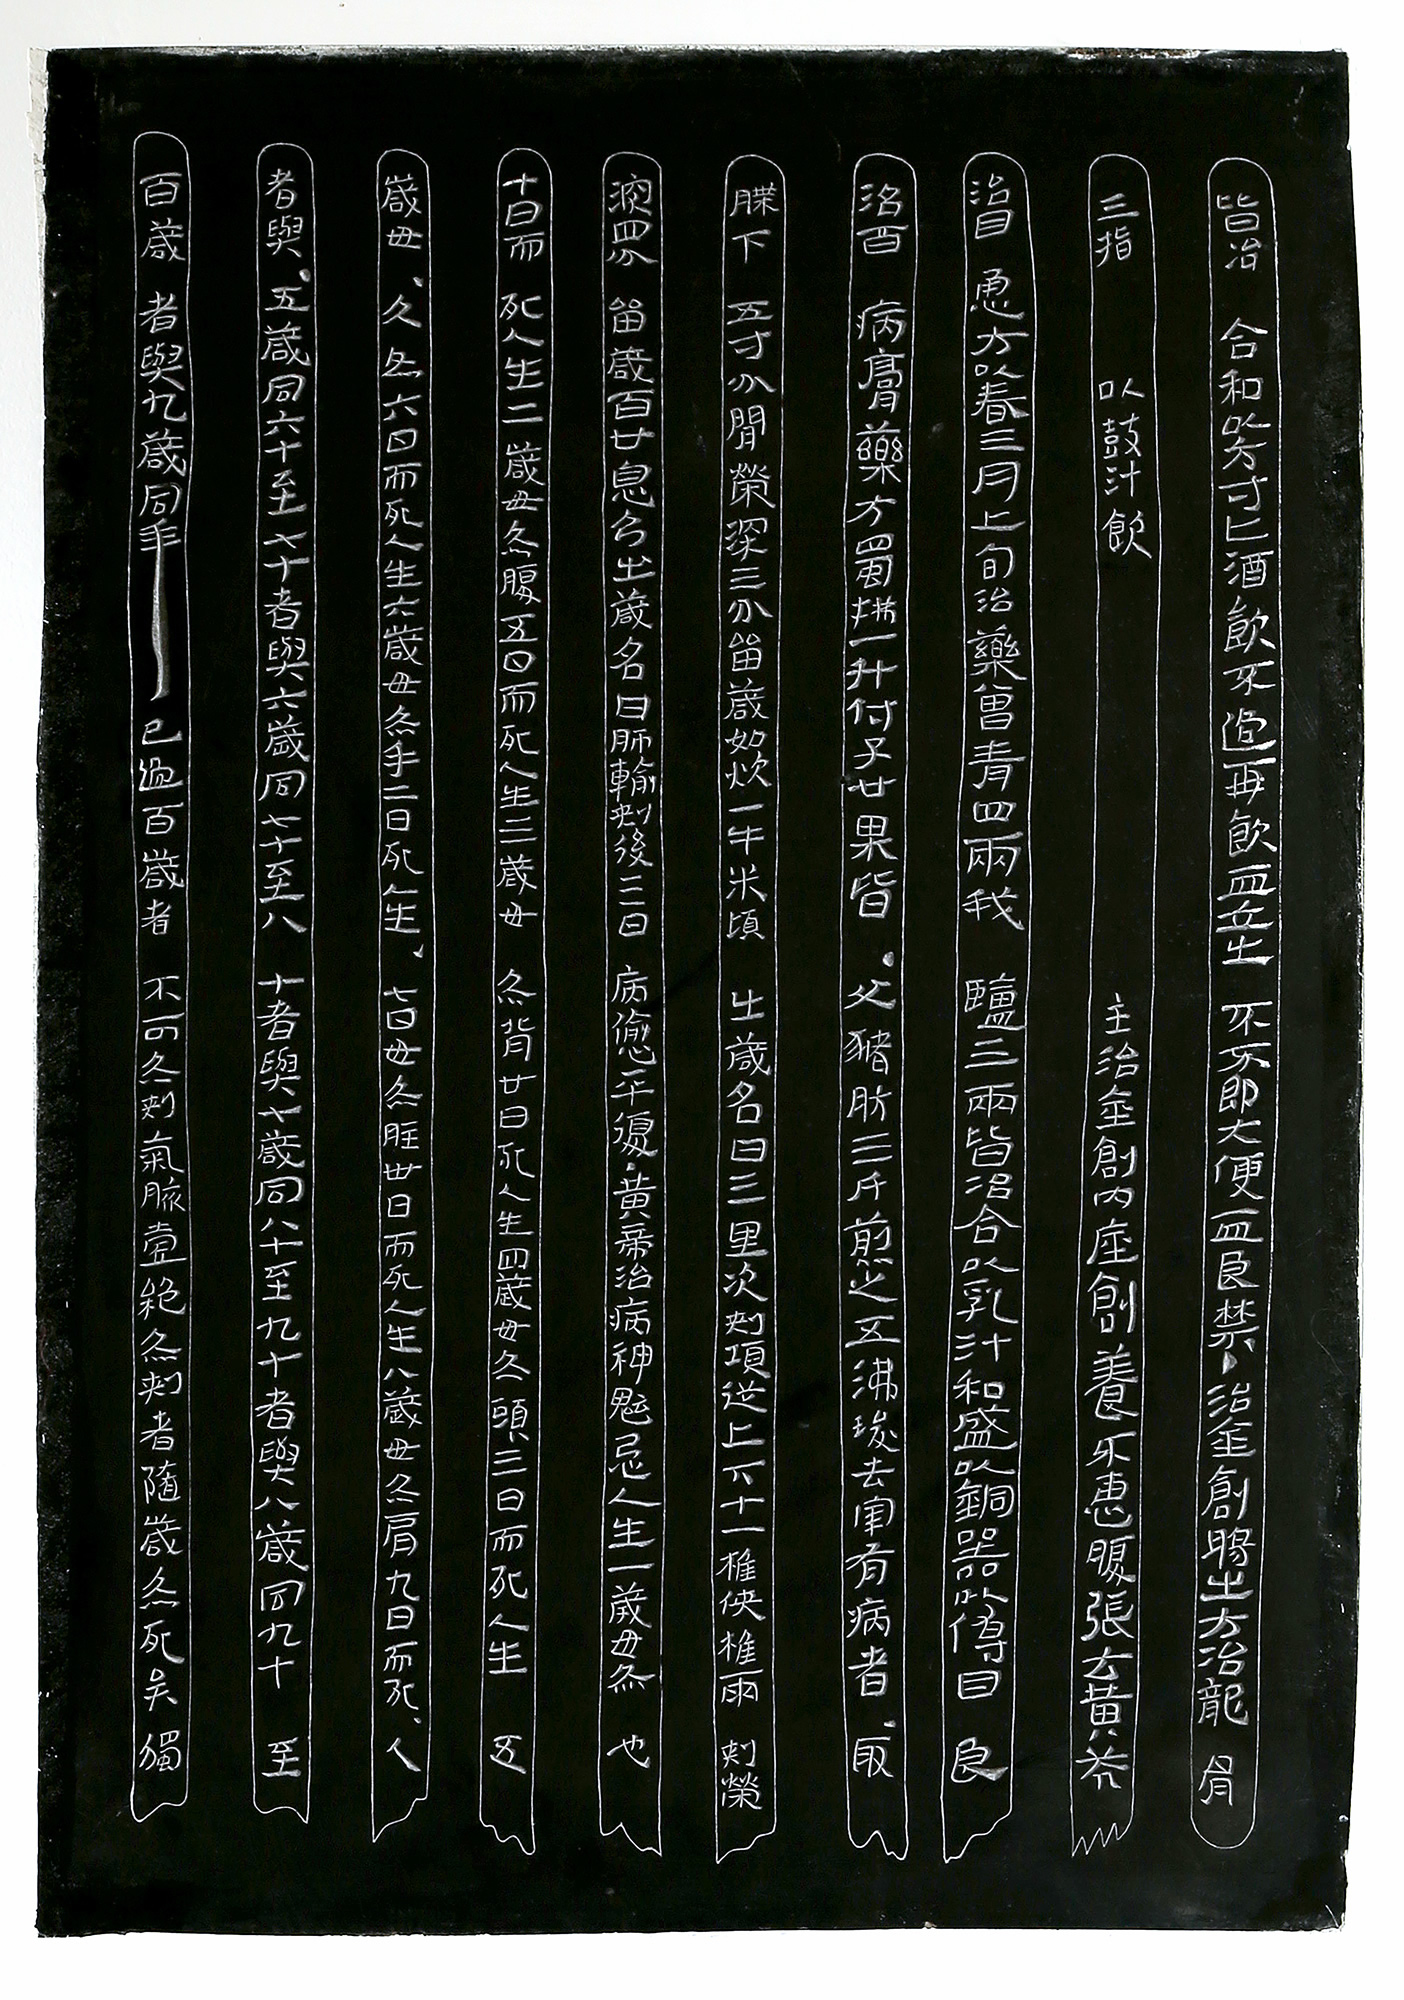 皆冶合和以方寸匕酒飲不過再飲血立出不不即大便血良禁、治金創腸出方冶龍骨
三指以鼓汁飲主治金創內座創養不恵腹張方黃芩
治目恿方以春三月上旬治藥曾青四兩戎鹽三兩皆冶合以乳汁和盛以銅器以傅目良
治百病膏藥方蜀椒一升付子廿果皆、父豬肪三斤煎之五沸浚去宰有病者、取
膝下五寸分閒榮深三分留箴如炊一升米頃出箴名曰三里次刺項從上下十一椎俠椎兩刺榮
深四分留箴百廿息乃出箴名曰肺輸刺後三日病愈平復·黃帝治病神魁忌人生一歲毋灸也
十日而死人生二歲毋灸腹五日而死人生三歲毋灸背廿日死人生四歲毋灸頭三日而死人生五
歲毋、久灸六日而死人生六歲毋灸手二日死生、七日毋灸脛卅日而死人生八歲毋灸肩九日而死、人
者與、五歲同六十至七十者與六歲同七十至八十者與、七歲同八十至九十者與八歲同九十至
百歲者與九歲同年已過百歲者不可灸刺氣脈壹絕灸刺者隨箴灸死矣獨